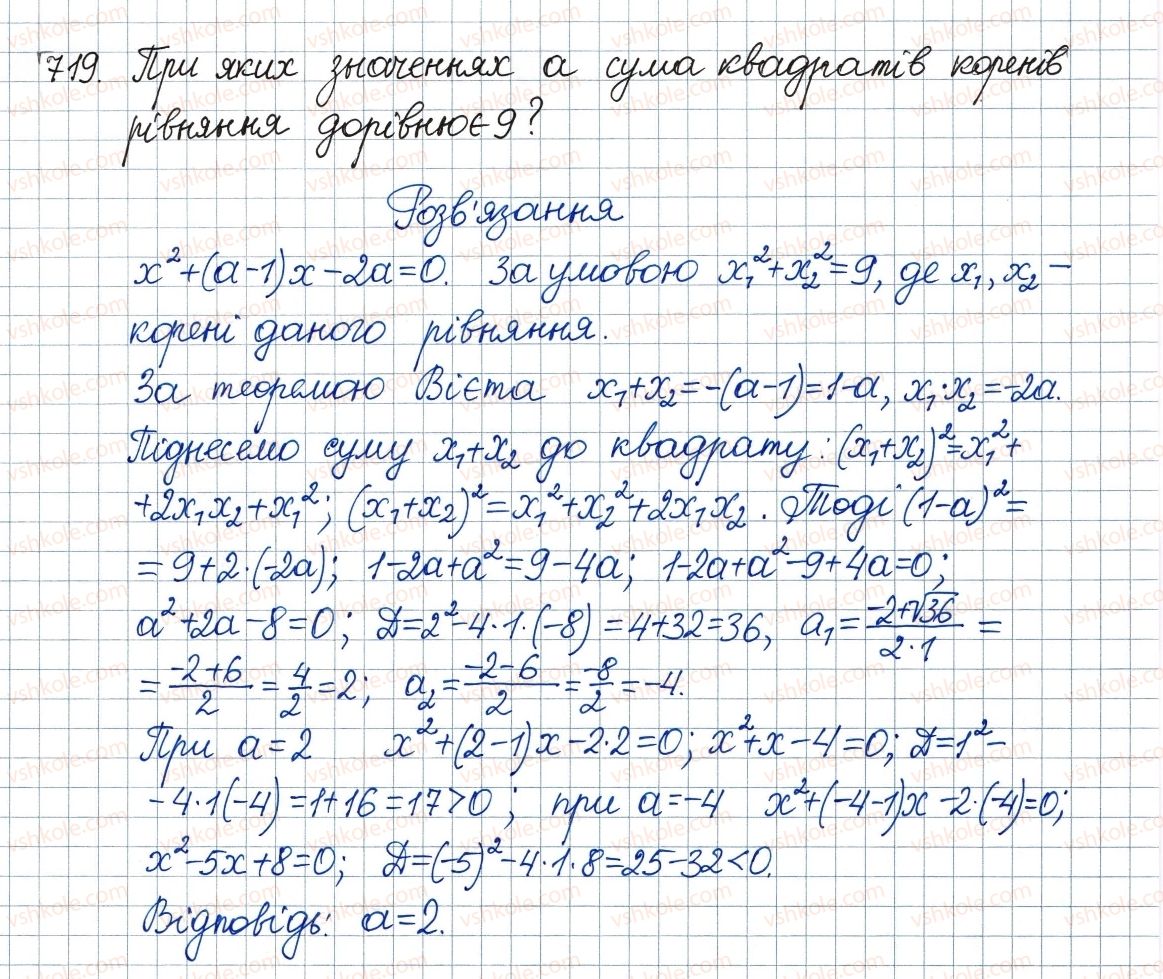 719. При яких значеннях а сума квадратів коренів
рівняння дорівнює 9?
Розв'язання
x²+(a-1)x-2a=0. За умовою x₁²+x₂²=9, де x₁, x₂ –
корені даного рівняння.
За теоремою Вієта x₁+x₂=-(a-1)=1-a, x₁·x₂=-2a.
Піднесемо суму x₁+x₂ до квадрату: (x₁+x₂)²=x₁²+
+2x₁x₂+x₁²; (x₁+x₂)²=x₁²+x₂²+2x₁x₂. Тоді (1-a)²=
=9+2·(-2a); 1-2a+a²=9-4a; 1-2a+a²-9+4a=0;
a²+2a-8=0; Д=2²-4·1·(-8)=4+32=36, a₁=(-2+√36)/(2·1)=
=(-2+6)/2=4/2=2; a₂=(-2-6)/2=-8/2=-4.
При a=2 x²+(2-1)x-2·2=0; x²+x-4=0; Д=1²-
-4·1(-4)=1+16=17>0; при a=-4 x²+(-4-1)x-2·(-4)=0;
x²-5x+8=0; Д=(-5)²-4·1·8=25-32<0.
Відповідь: a=2.